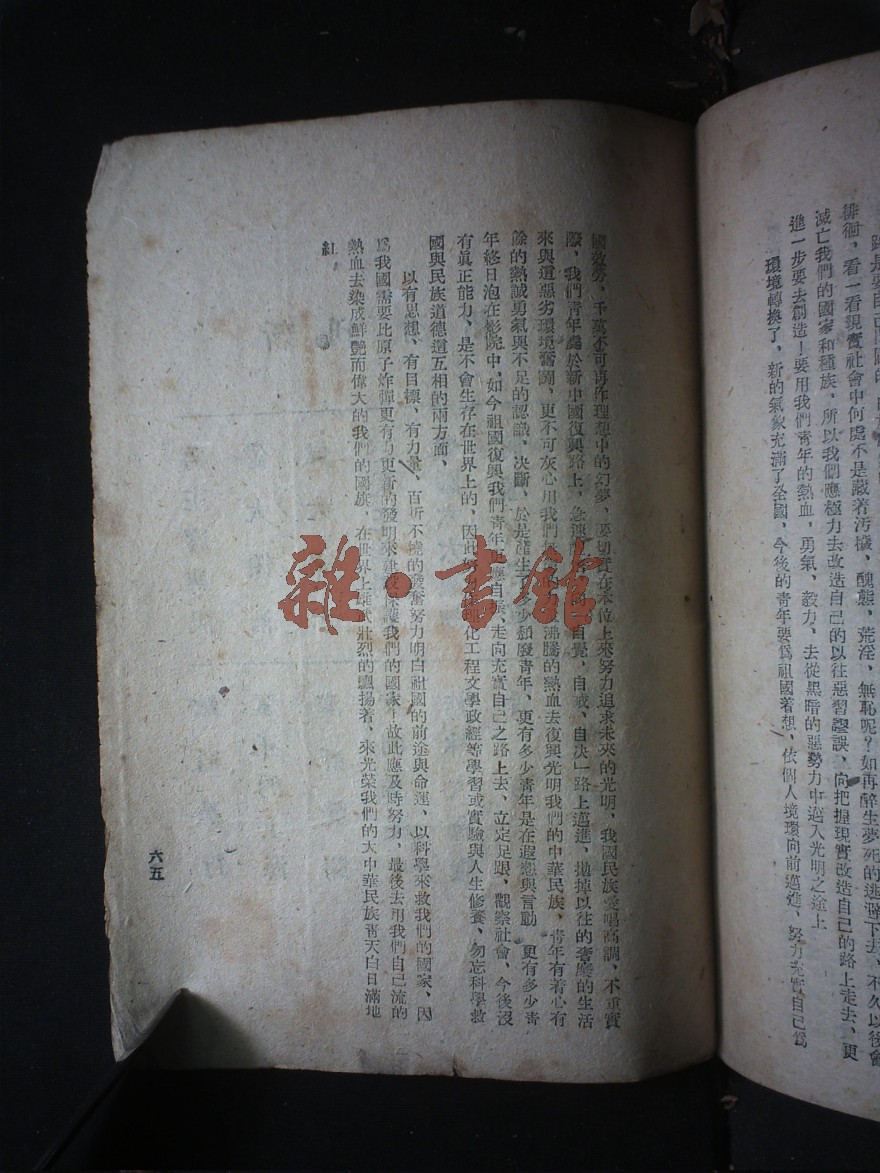 徘徊，看一看現實社會中何處不是敲着汚穢，醜態，荒淫，無恥呢？如再醉生夢死的逃避下去、不久以後會
滅亡我們的國家和種族，所以我們應極力去改造自己的以往惡習謬誤、向把握現實改造自己的路上走去、更
進一步要去創造！要用我們青年的熱血，勇氣、毅力、去從黑暗的惡勢力中邁入光明之途上
環境轉換了，新的氣象充滿了全國，今後的青年要爲祖國着想、依個人境環向前邁進、努力充實自己爲
國效勞，千萬不可再作理想中的幻夢，要切實在本位上來努力追求未來的光明、我國民族愛唱高調、不重實
際，我們青年處於新中國復興路上，急速自覺，自戒，自决一路上邁進，拋掉以往的奢靡的生活
來與這惡劣環境奮鬪，更不可灰心用我們沸騰的熱血去復興光明我們的中華民族，青年有着心有
餘的熱誠勇氣與不足的認識、決斷、於是產生了多少頹廢青年、更有多少青年是在遐想與言動　更有多少青
年終日泡在影院中，如今祖國復興我們青年更應自、走向充實自己之路上去、立定足跟、觀察社會、今後沒
有眞正能力、是不會生存在世界上的，因此化工程文學政經等學習或實驗與人生修養、勿忘科學救
國與民族道德這互相的兩方面、
以有思想、有目標、有力量、百折不撓的發奮努力明白祖國的前途與命運，以科學來救我們的國家、因
爲我國需要比原子炸彈更有力更新的發明來建設保護我們的國家！故此應及時努力，最後去用我們自己流的
熱血去染成鮮艷而偉大的我們的國族，在世界上雄武壯烈的飄揚着、來光榮我們的大中華民族靑天白日滿地
紅
六五
雜·書館